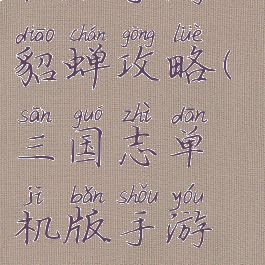 diāo chán gōng lüè
貂蝉攻略(
sān guó zhì dān
三国志单
jī bǎn shǒu yóu
机版手游